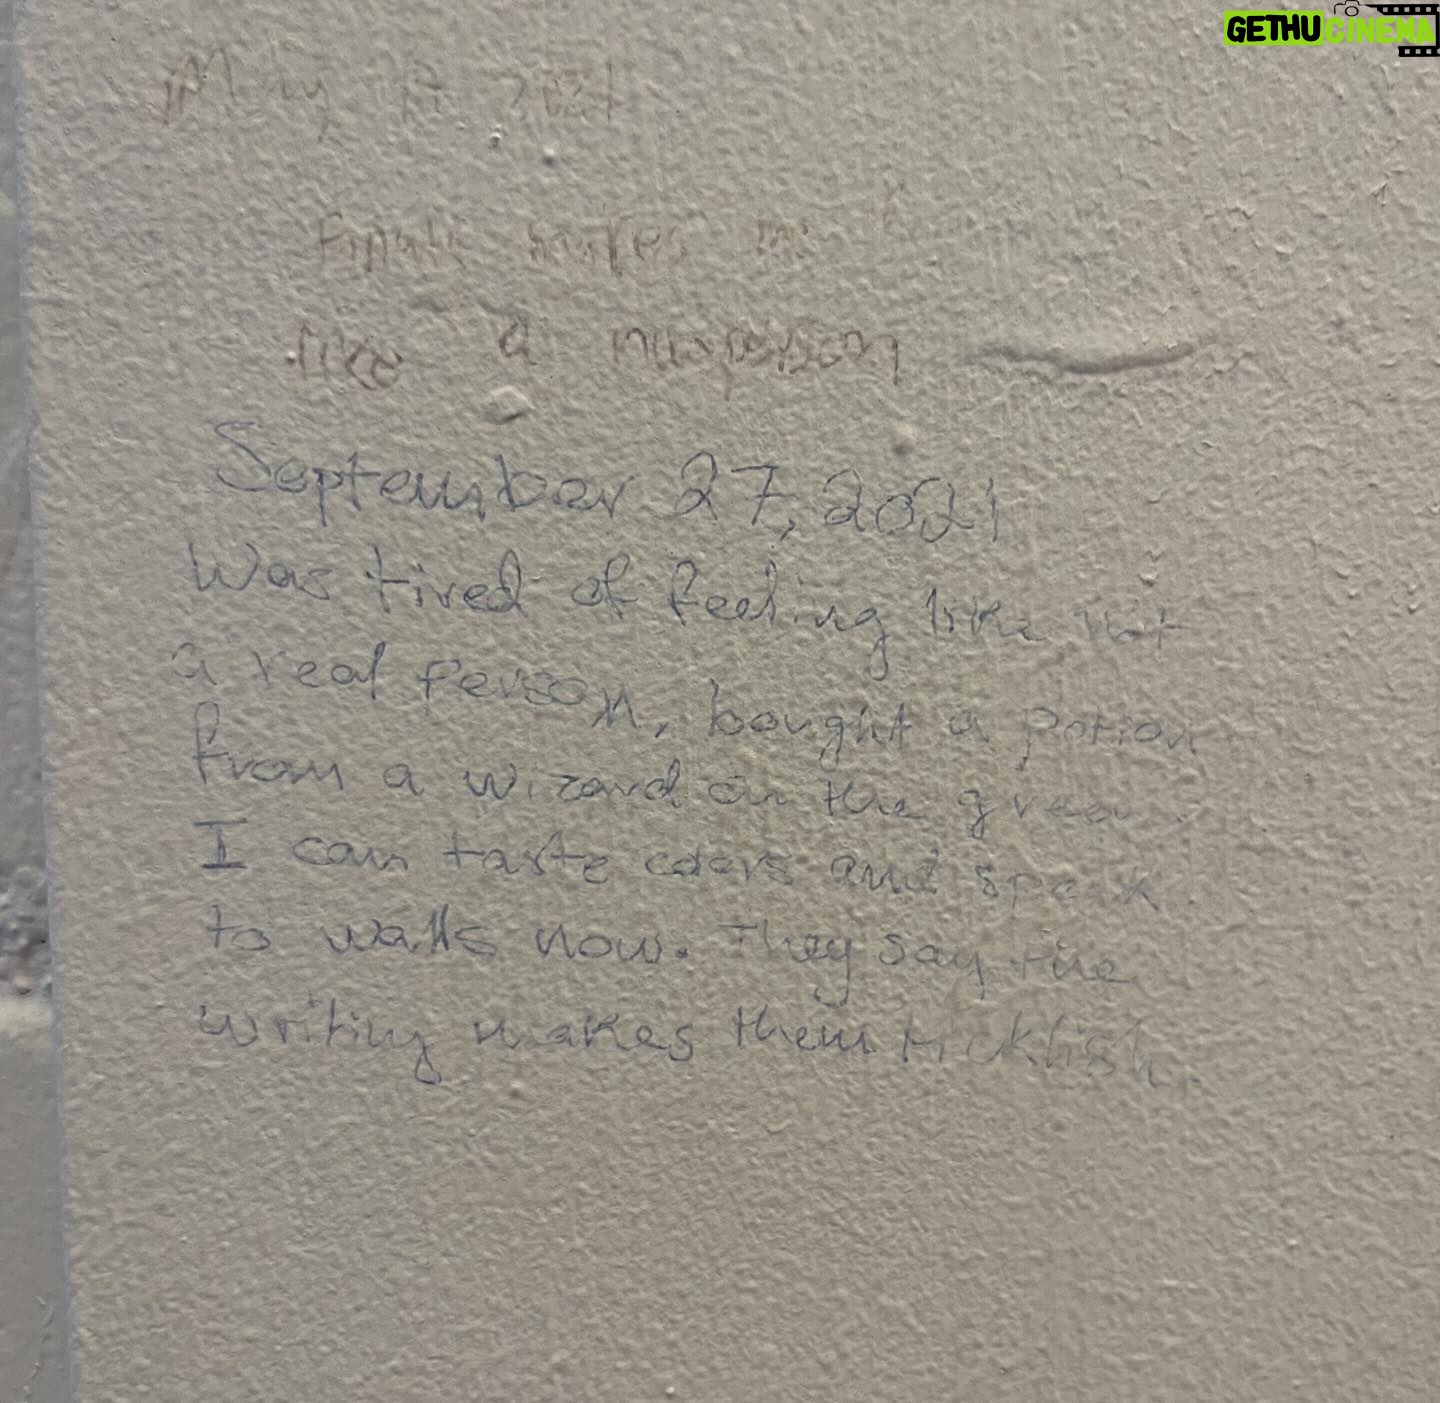 GETHUCINEMA
May
makes
like a nonperson
September 27, 2021
Was tired of feeling like not
a real person, bought a potion
from a wizard on the green.
I can taste colors and speak
to walls now. They say the
writing makes them ticklish.